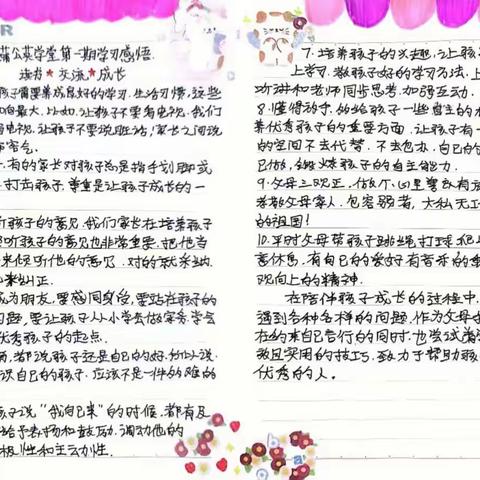 蒲公英学堂第一期学习感悟
读书★交流★成长
孩子需要养成良好的学习.生活习惯.这些
响最大.比如.让孩子不要看电视.我们
看电视.让孩子不要说脏话!家长之间说
客气.
有的家长对孩子总是指手划脚或
打击孩子.尊重是让孩子成长的一
听孩子的意见.我们家长在培养孩子
听孩子的意见也非常重要.把他当
来倾听他的意见.对的就采纳.
来纠正.
成为朋友.要感同身受.要站在孩子的
问题.要让孩子从小学会做家务学会
优秀孩子的起点.
都说孩子还是自己的好.
识自己的孩子.应该不是一件的难的
孩子说“我自己来”的时候.都有及
给予表扬和鼓励.调动他的
极性和主动性.
7.培养孩子的兴趣.让孩
上学习.教孩子好的学习方法.上
功讲和老师同步思考.加强互动.
8.懂得放手.给孩子一些自主的权
养优秀孩子的重要方面.让孩子有一
的空间不去代替.不去包办.自己的
己做.锻炼孩子的自主能力.
9.父母三观正.做人.心里要
家人.包容弱者.大私无工
的祖国!
10.平时父母带孩子跳绳.打球.爬
意休息.有自己的爱好有营养的
观向上的精神.
在陪伴孩子成长的过程中.
遇到各种各样的问题.作为父母
在约束自己言行的同时.也尝试着
效且实用的技巧.致力于帮助孩
优秀的人.